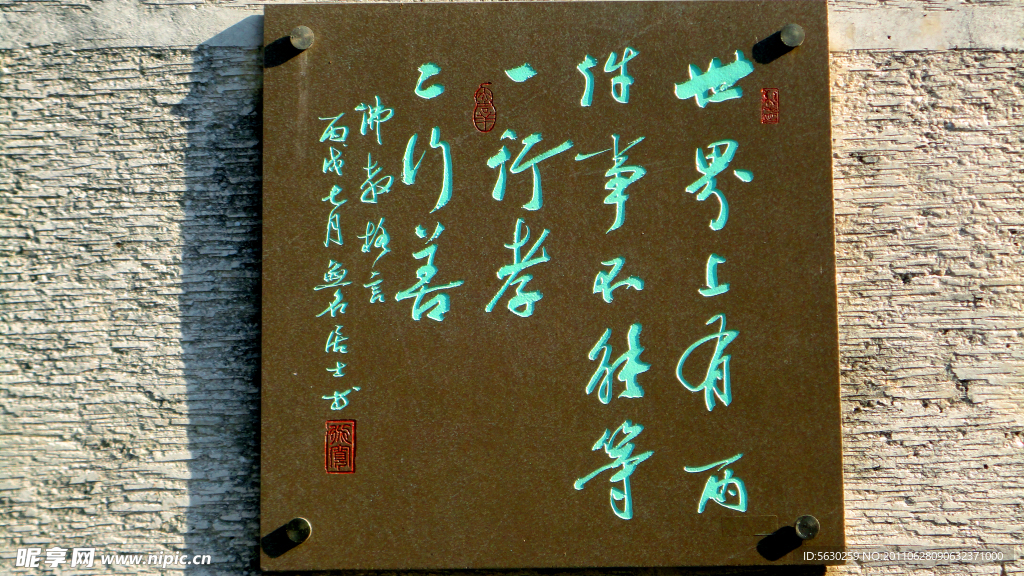 世界上有两
件事不能等
一行孝
二行善
佛教格言
丙戌七月無名居士书
昵享网 www.nipic.cn
ID:5630259 NO:20110628090632371000